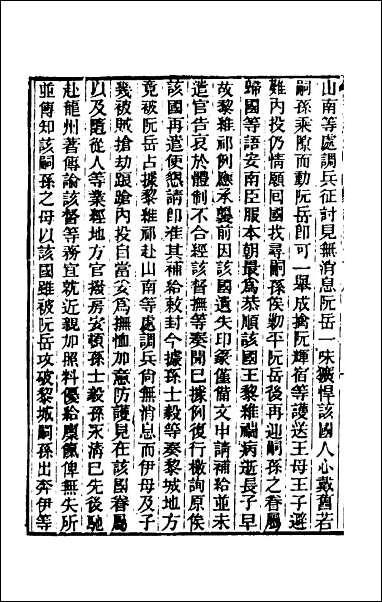 山南等處調兵征討見無消息阮岳一味獷悍該國人心戴舊若
嗣孫乘隙而動阮岳即可一舉成擒阮輝宿等護送王母王子避
難內投仍情願回國找尋嗣孫俟勦平阮岳後再迎嗣孫之眷屬
歸國等語安南臣服本朝最爲恭順該國王黎維褍病逝長子早
故黎維祁例應承襲前因該國遺失印篆僅備文申請補給並未
遣官告哀於體制不合經該督撫等奏聞已據例復行檄詢原俟
該國再遣使懇請即准其補給敕封今據孫士毅等奏黎城地方
竟被阮岳占據黎維祁赴山南等處調兵尙無消息而伊母及子
幾被賊搶劫踉蹌內投自當安爲撫恤加意防護見在該國眷屬
以及隨從人等業經地方官撥房安頓孫士毅孫永淸已先後馳
赴龍州著傳諭該督等務宜就近親加照料優給廩餼俾無失所
並傳知該嗣孫之母以該國雖被阮岳攻破黎城嗣孫出奔伊等